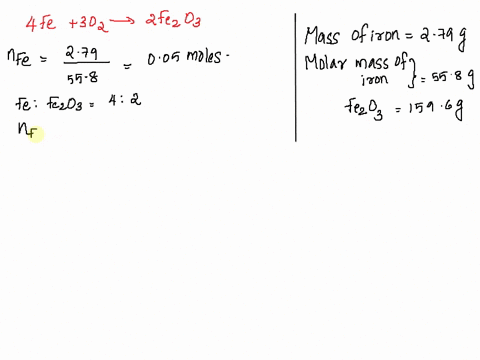 4Fe +3O₂ → 2Fe₂O₃
nFe = 2.79 / 55.8 = 0.05 moles.
Fe : Fe₂O₃ = 4 : 2
nF
Mass of iron = 2.79 g
Molar mass of iron } = 55.8 g
Fe₂O₃ = 159.6 g